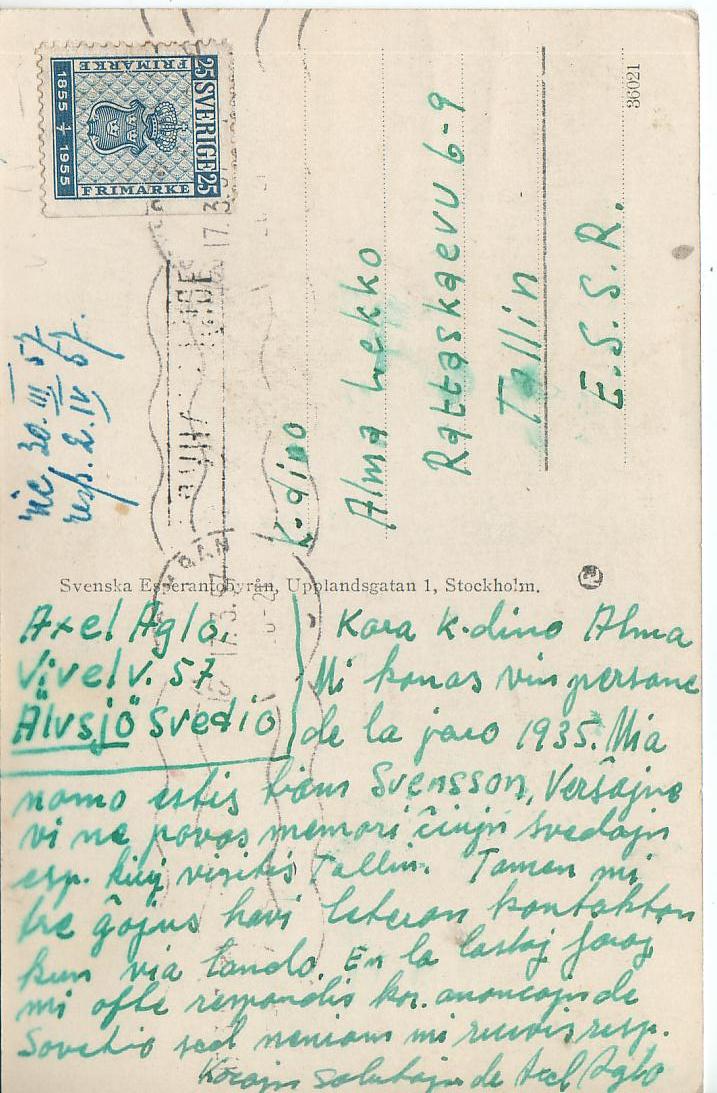 SVERIGE 25
25
FRIMÄRKE
FRIMÄRKE
1855 1/7 1955
17.3.57
ric. 30.III 57
resp. 2.IV 57.
K.dino
Alma Lekko
Rattaskaevu 6-9
Tallin
E.S.S.R.
36021
Svenska Esperantobyrån, Upplandsgatan 1, Stockholm.
Axel Aglo.
Vivelv. 57
Älvsjö Svedio
Kara k.dino Alma
Mi konas vin persone
de la jaro 1935. Mia
nomo estis tiam Svensson, Verŝajne
vi ne povas memori ĉiujn svedajn
esp. kiuj visitis Tallin. Tamen mi
tre ĝojus havi leteran kontakton
kun via lando. En la lastaj jaroj
mi ofte respondis kor. anoncojn de
Sovetio sed neniam mi ricevis resp.
Korajn salutojn de Axel Aglo